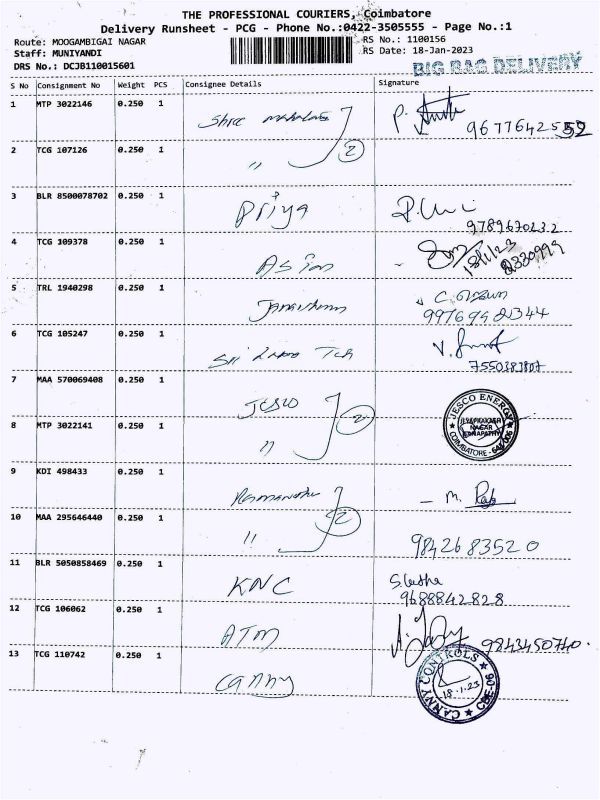 THE PROFESSIONAL COURIERS, Coimbatore
Delivery Runsheet - PCG - Phone No.:0422-3505555 - Page No.:1
Route: MOOGAMBIGAI NAGAR RS No.: 1100156
Staff: MUNIYANDI RS Date: 18-Jan-2023
DRS No.: DCJB110015601 BIG BAG DELIVERY
S No Consignment No Weight PCS Consignee Details Signature
1 MTP 3022146 0.250 1 Shree P.
2 TCG 107126 0.250 1 " 2
3 BLR 8500078702 0.250 1 Priya
9789670232
4 TCG 109378 0.250 1 Asian 18/1/23
5 TRL 1940298 0.250 1 C.
6 TCG 105247 0.250 1 Sri V.
7550387807
7 MAA 570069408 0.250 1 Jesco 2 JESCO ENERGY
NAGAR
COIMBATORE
8 MTP 3022141 0.250 1 "
9 KDI 498433 0.250 1 - M.
10 MAA 295646440 0.250 1 " 2 9842683520
11 BLR 5050858469 0.250 1 KNC
9688842828
12 TCG 106062 0.250 1 ATM 9843450740.
13 TCG 110742 0.250 1 Canny CANNY CONTROLS CBE-06
18.1.23